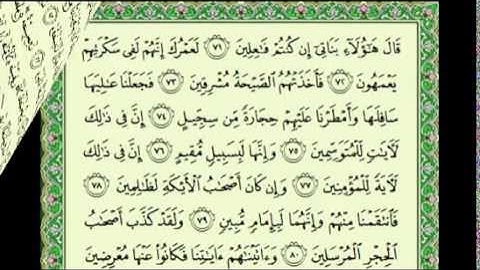 قَالَ هَٰٓؤُلَآءِ بَنَاتِىٓ إِن كُنتُمْ فَٰعِلِينَ ٧١ لَعَمْرُكَ إِنَّهُمْ لَفِى سَكْرَتِهِمْ
يَعْمَهُونَ ٧٢ فَأَخَذَتْهُمُ ٱلصَّيْحَةُ مُشْرِقِينَ ٧٣ فَجَعَلْنَا عَٰلِيَهَا
سَافِلَهَا وَأَمْطَرْنَا عَلَيْهِمْ حِجَارَةً مِّن سِجِّيلٍ ٧٤ إِنَّ فِى ذَٰلِكَ
لَءَايَٰتٍ لِّلْمُتَوَسِّمِينَ ٧٥ وَإِنَّهَا لَبِسَبِيلٍ مُّقِيمٍ ٧٦ إِنَّ فِى ذَٰلِكَ
لَءَايَةً لِّلْمُؤْمِنِينَ ٧٧ وَإِن كَانَ أَصْحَٰبُ ٱلْأَيْكَةِ لَظَٰلِمِينَ ٧٨
فَٱنتَقَمْنَا مِنْهُمْ وَإِنَّهُمَا لَبِإِمَامٍ مُّبِينٍ ٧٩ وَلَقَدْ كَذَّبَ أَصْحَٰبُ
ٱلْحِجْرِ ٱلْمُرْسَلِينَ ٨٠ وَءَاتَيْنَٰهُمْ ءَايَٰتِنَا فَكَانُوا۟ عَنْهَا مُعْرِضِينَ